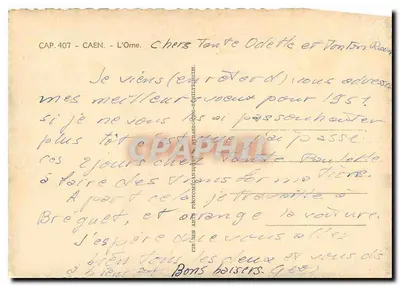 CAP. 407 - CAEN. - L'Orne. Chers Tante Odette et Tonton
Je viens (en retard) vous adresser
mes meilleurs voeux pour 1951.
si je ne vous les ai pas souhaiter
plus tôt c'est que j'ai passé
ces jours chez Tante Paulette
à faire des transformations.
A part cela je travaille à
Breguet, et arange la voiture.
J'espère que vous allez
bien tous les deux et vous dis
à bientôt Bons baisers.
CPAPHIL